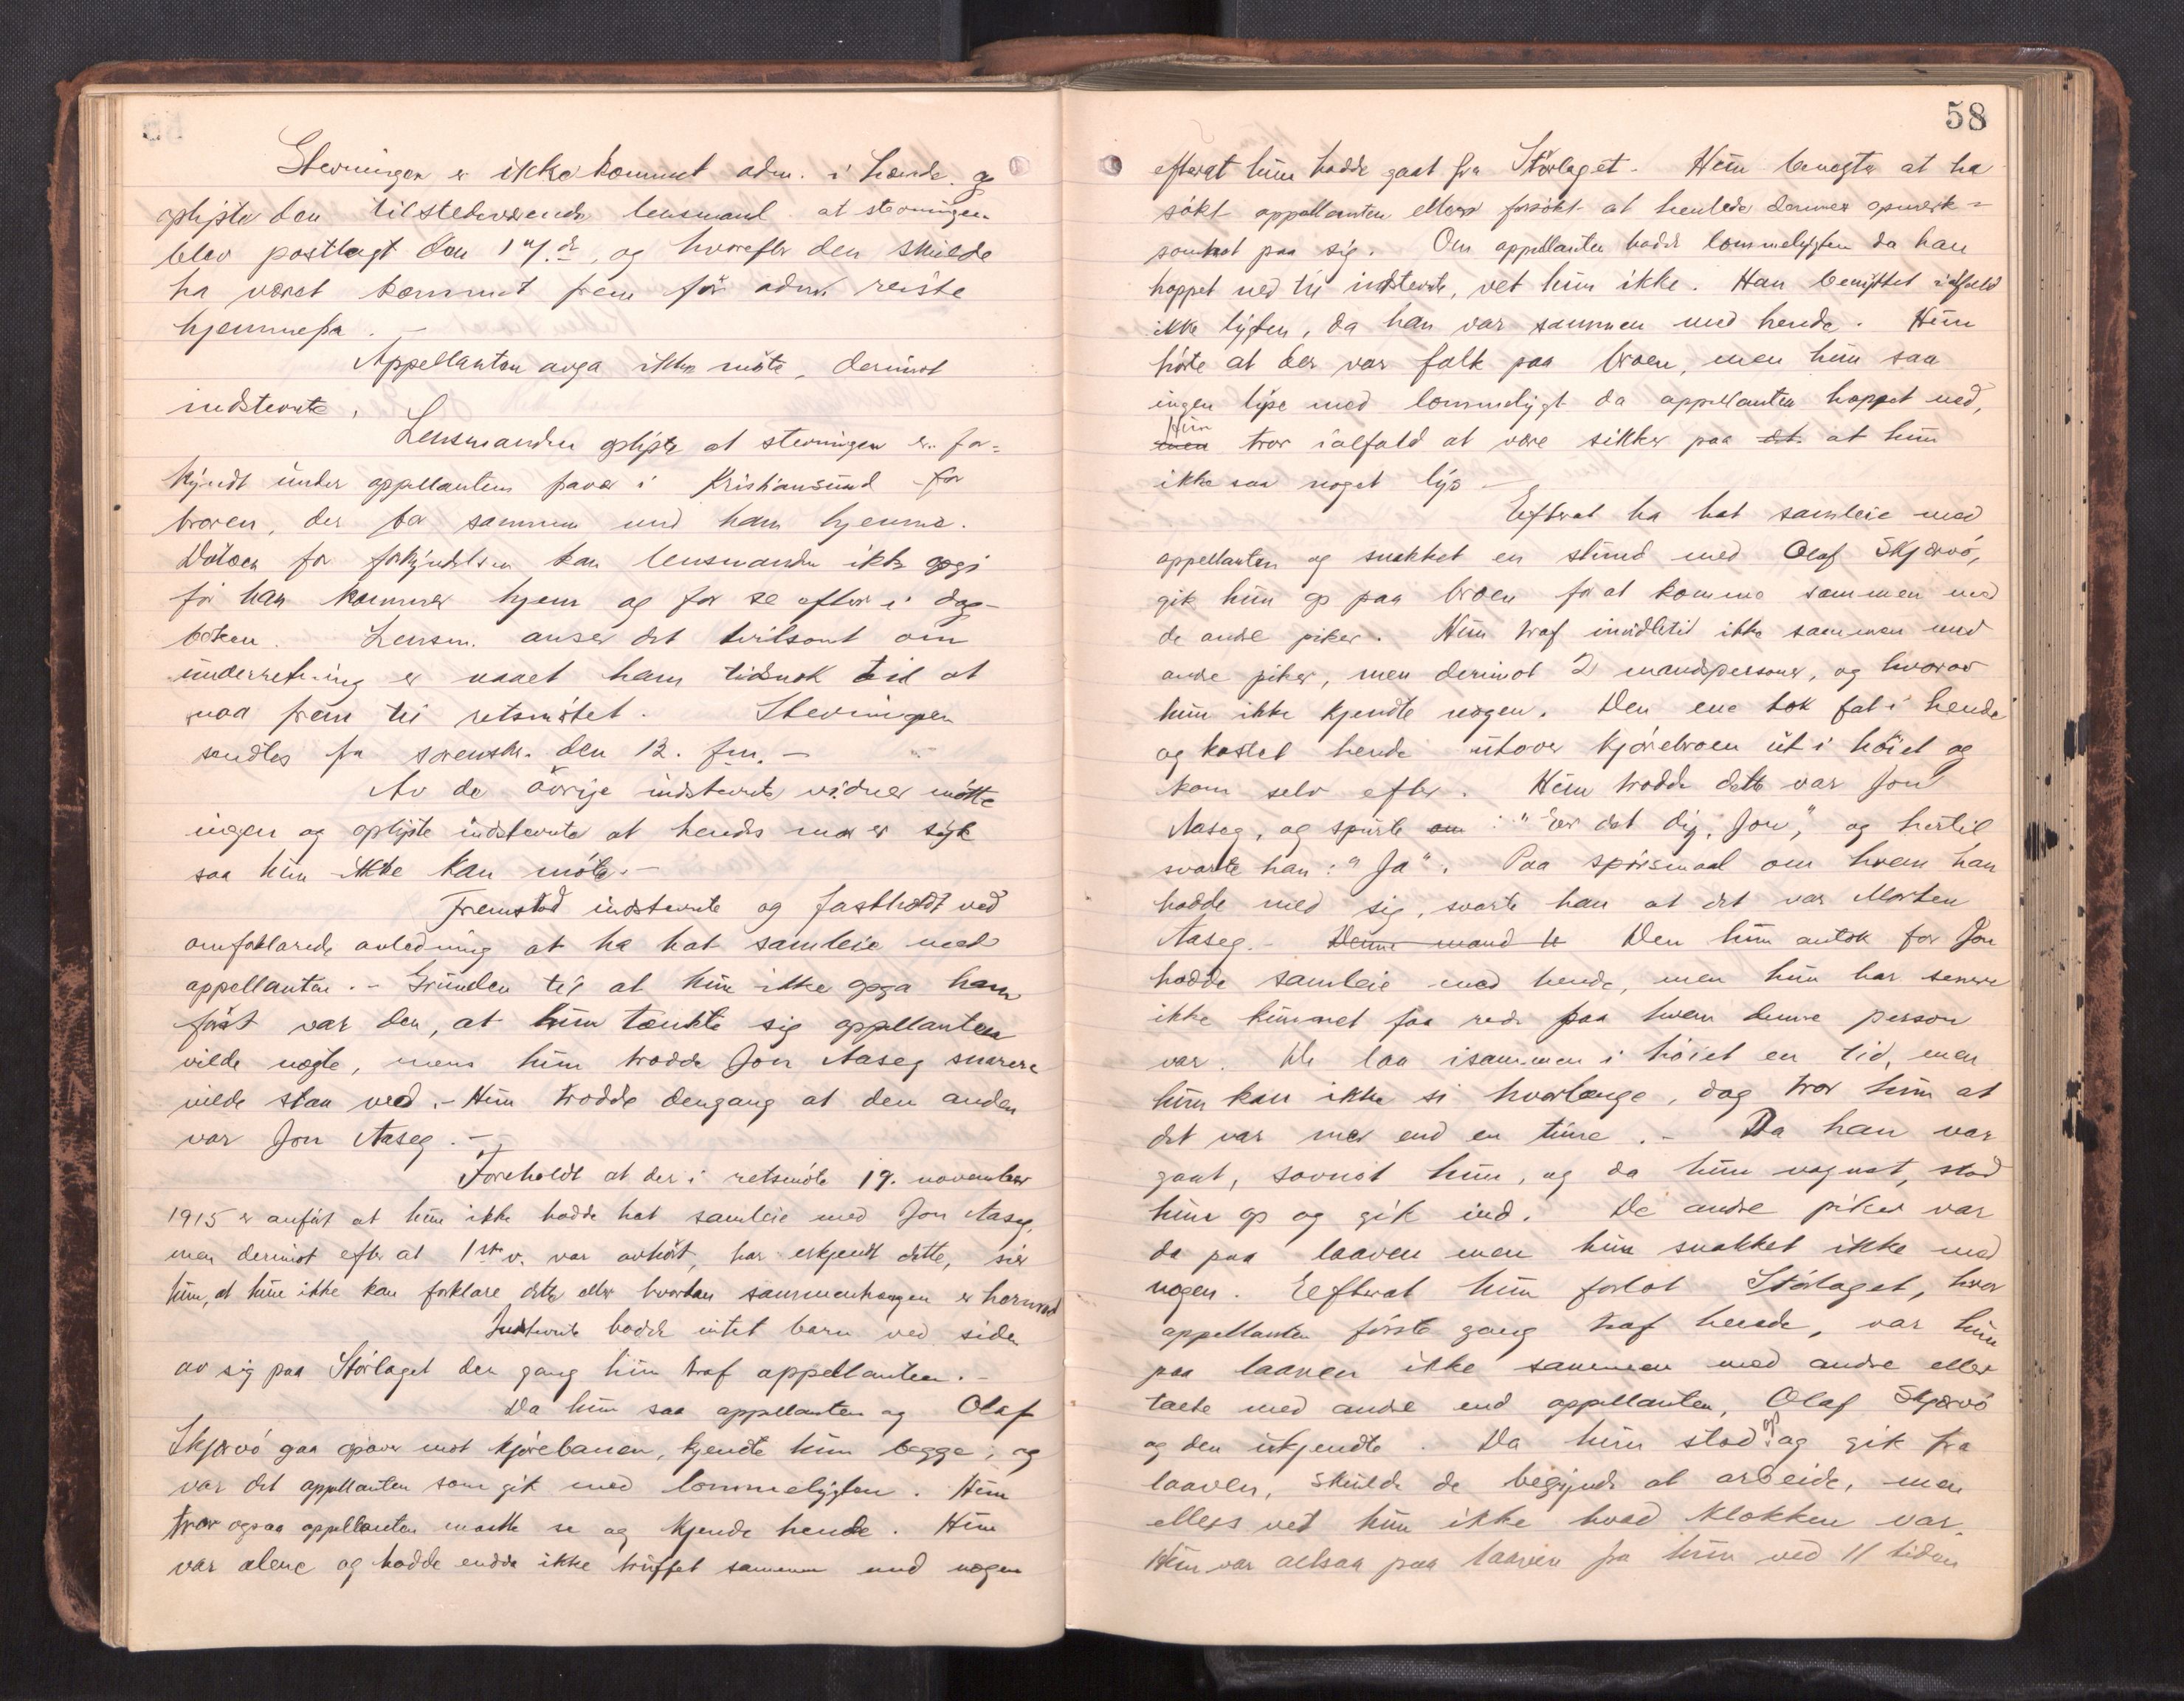 Stevningen er ikke kommet adm. i hænde og
oplyste den tilstedeværende lensmand at stevningen
blev postlagt den 17. ds, og hvorefter den skulde
ha været kommet frem før adm. reiste
hjemmefra. -
Appellanten avga ikke møte, derimot
indstevnte.
Lensmanden oplyste at stevningen er for-
kyndt under appellantens fravær i Kristiansund for
broren, der bor sammen med ham hjemme.
Datoen for forkyndelsen kan lensmanden ikke opgi
før han kommer hjem og får se efter i dag-
boken. Lensm. anser det tvilsomt om
underretning er naaet ham tidsnok til at
naa frem til retsmøtet. Stevningen
sendtes fra sorenskr. den 12. f.m. -
Av de øvrige indstevnte vidner møtte
ingen og oplyste indstevnte at hendes mor er syk
saa hun ikke kan møte. -
Fremstod indstevnte og fastholdt ved
omforklarede anledning at ha hat samleie med
appellanten. - Grunden til at hun ikke opga ham
først var den, at hun tænkte sig appellanten
vilde negte, mens hun trodde Jon Aaseg snarere
vilde staa ved. - Hun trodde dengang at den anden
var Jon Aaseg. -
Foreholdt at der i retsmøte 19. november
1915 er anført at hun ikke hadde hat samleie med Jon Aaseg,
men derimot efter at 1ste v. var avhørt, har erkjendt dette, sier
hun, at hun ikke kan forklare dette eller hvordan sammenhængen er hermed
Indstevnte hadde intet barn ved siden
av sig paa Størlaget den gang hun traf appellanten. -
Da hun saa appellanten og Olaf
Skjærvø gaa opover mot kjørebanen, kjendte hun begge, og
var det appellanten som gik med lommelygten. Hun
tror ogsaa appellanten maatte se og kjende hende. Hun
var alene og hadde endda ikke truffet sammen med nogen
58
efterat hun hadde gaat fra Størlaget. Hun benegter at ha
søkt appellanten eller forsøkt at henlede dennes opmerk-
somhet paa sig. Om appellanten hadde lommelygten da han
hoppet ned til indstevnte, vet hun ikke. Han benyttet ialfald
ikke lygten, da han var sammen med hende. Hun
hørte at der var folk paa broen, men hun saa
ingen lyse med lommelygt da appellanten hoppet ned,
men Hun tror ialfald at være sikker paa det at hun
ikke saa noget lys -
Efterat ha hat samleie med
appellanten og snakket en stund med Olaf Skjærvø,
gik hun op paa broen for at komme sammen med
de andre piker. Hun traf imidlertid ikke sammen med
andre piker, men derimot 2 mandspersoner, og hvorav
hun ikke kjendte nogen. Den ene tok fat i hende
og kastet hende utover kjørebroen ut i høiet og
kom selv efter. Hun trodde dette var Jon
Aaseg, og spurte om: "Er det dig, Jon", og hertil
svarte han: "Ja". Paa spørsmaal om hvem han
hadde med sig, svarte han at det var Morten
Aaseg. - Denne mand h Den hun antok for Jon
hadde samleie med hende, men hun har senere
ikke kunnet faa rede paa hvem denne person
var. De laa isammen i høiet en tid, men
hun kan ikke si hvorlænge, dog tror hun at
det var mer end en time. - Da han var
gaat, sovnet hun, og da hun vaagnet, stod
hun op og gik ind. De andre piker var
da paa laaven men hun snakket ikke med
nogen. Efterat hun forlot Størlaget, hvor
appellanten første gang traf hende, var hun
paa laaven ikke sammen med andre eller
talte med andre end appellanten, Olaf Skjærvø
og den ukjendte. Da hun stod op og gik fra
laaven, skulde de begynde at arbeide, men
ellers vet hun ikke hvad klokken var.
Hun var altsaa paa laaven fra hun ved 11 tiden